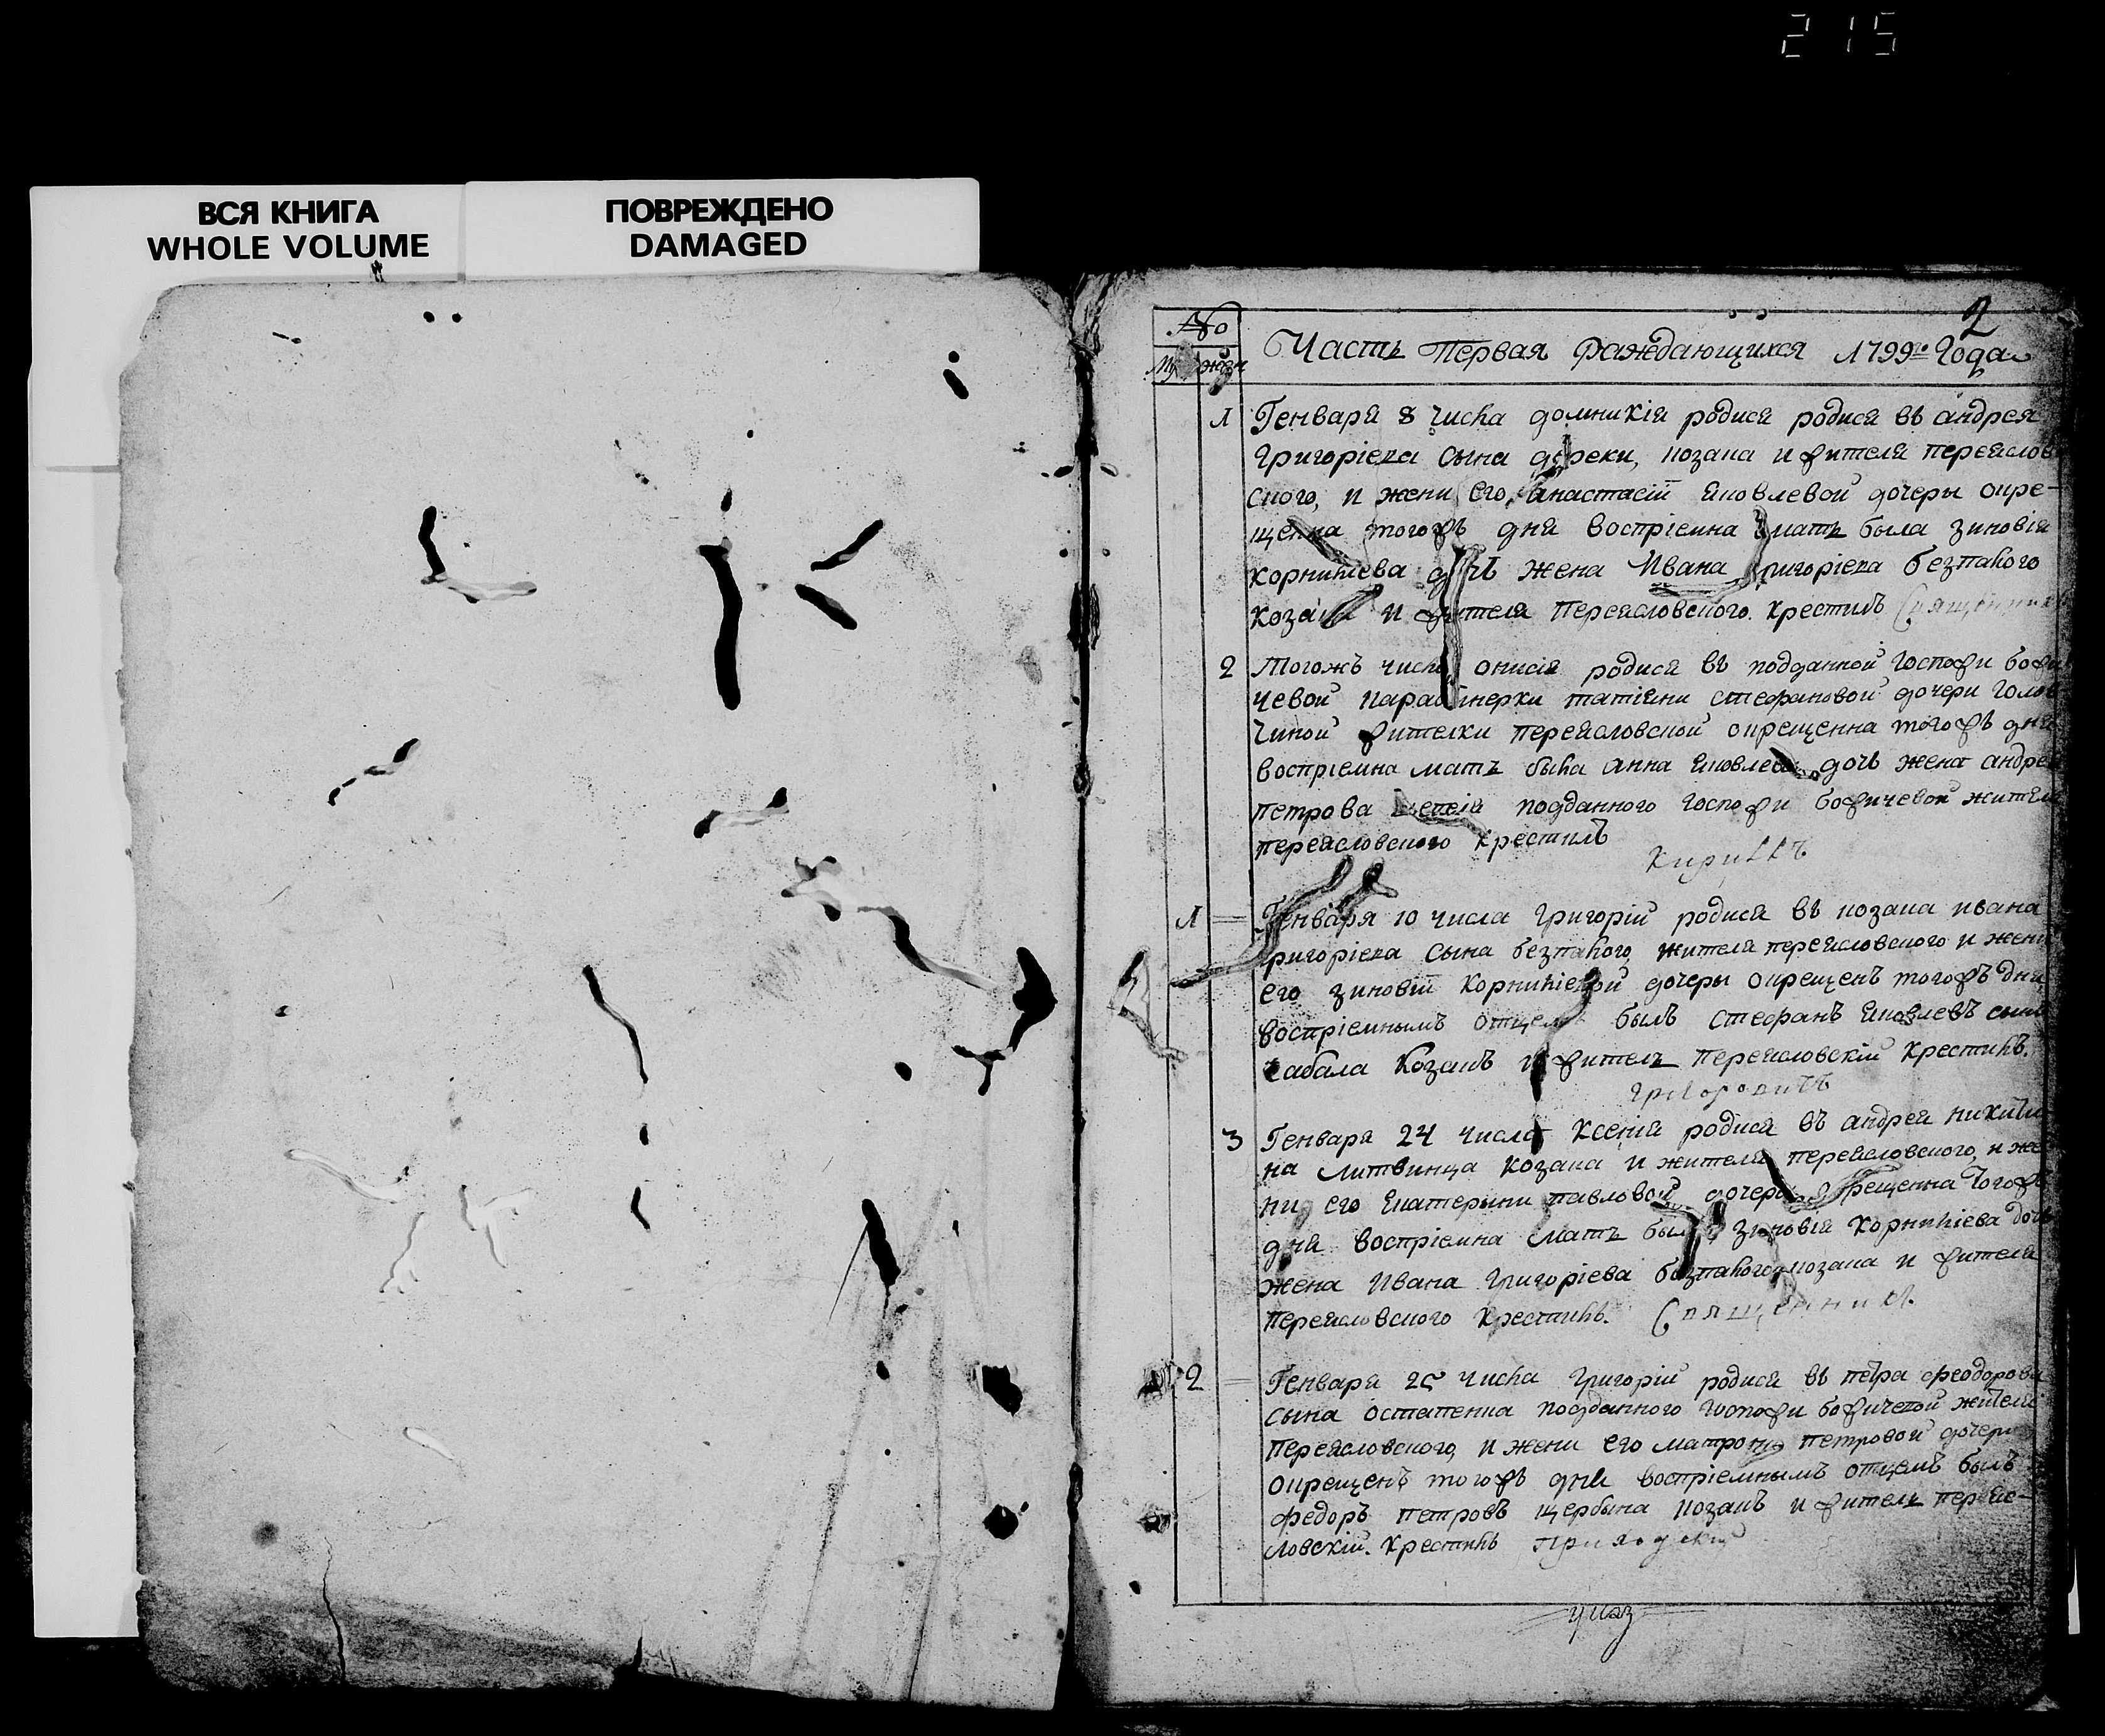 215
ВСЯ КНИГА
WHOLE VOLUME
ПОВРЕЖДЕНО
DAMAGED
2
№
Часть Первая раждающихся 1799го Года
жен
1 Генваря 8 числа домникія родися родися въ андрея
Григоріева сына козака и жителя переяслов
ского, и жени его анастасіи яковлевой дочеры окре-
щенна тогожъ дня воспріемна мать была зиновія
корниліева дочь жена Ивана григоріева безпалого
козака и жителя Переясловского. крестилъ Священникъ
2 Тогожъ числа онисія родися въ подданной Госпожи божи
чевой татіяни стефановой дочери
чиной жителки переясловской окрещенна тогожъ дня
воспріемна мать была анна яковлева дочь жена андрея
петрова подданного госпожи божичевой жителя
переясловского крестилъ
Кириллъ
1 Генваря 10 числа Григорій родися въ козака ивана
григоріева сына безпалого, жителя переясловского и жени
его зиновіи Корниліевой дочеры окрещенъ тогожъ дня
воспріемнымъ отцемъ былъ стефанъ яковлевъ сынъ
козакъ и житель переясловскій крестилъ.
Григоровичъ
3 Генваря 24 числа Ксенія родися въ андрея никити
на литвинца козака и жителя переясловского, и же
ни его Екатерини павловой дочери окрещенна тогожъ
дня воспріемна мать была зиновія Корниліева дочь
жена Ивана Григоріева безпалого козака и жителя
переясловского Крестилъ. Священникъ.
2 Генваря 25 числа Григорій родися въ петра феодорова
сына остапенка подданного госпожи божичевой жителя
переясловского, и жени его матрони петровой дочери
окрещенъ тогожъ дня воспріемнымъ отцемъ былъ
федоръ петровъ щербина козакъ и житель переяс-
ловскій. Крестилъ Приходскій